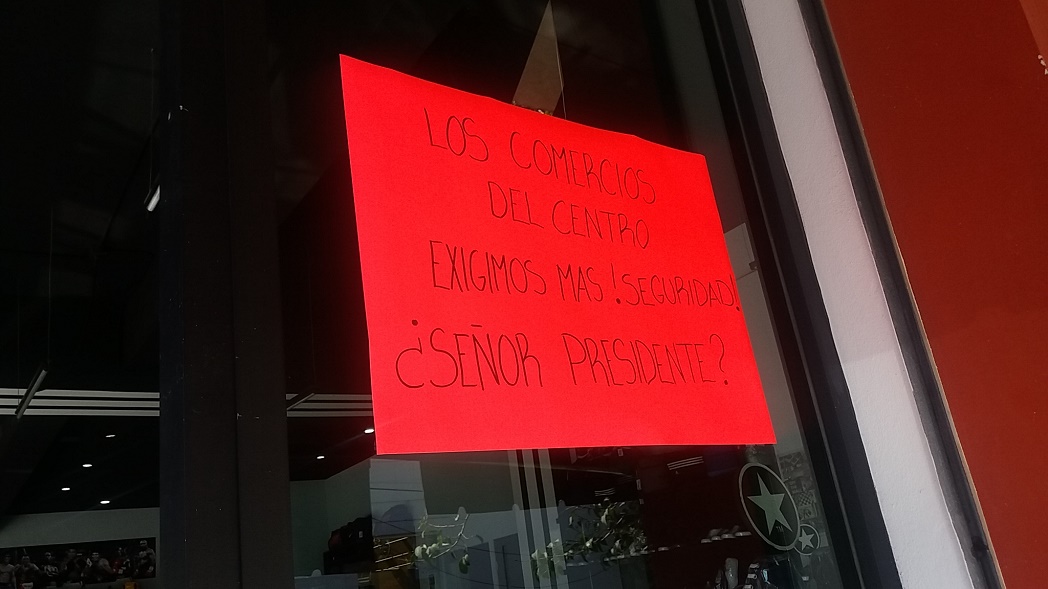 LOS COMERCIOS
DEL CENTRO
EXIGIMOS MAS !SEGURIDAD!
¿SEÑOR PRESIDENTE?